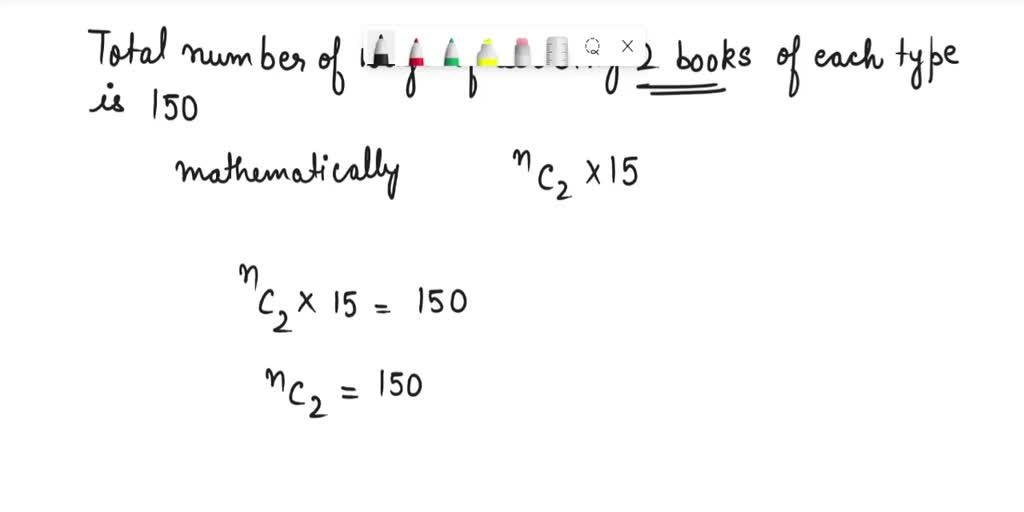 Total number of 2 books of each type
is 150
mathematically ⁿC₂ × 15
ⁿC₂ × 15 = 150
ⁿC₂ = 150